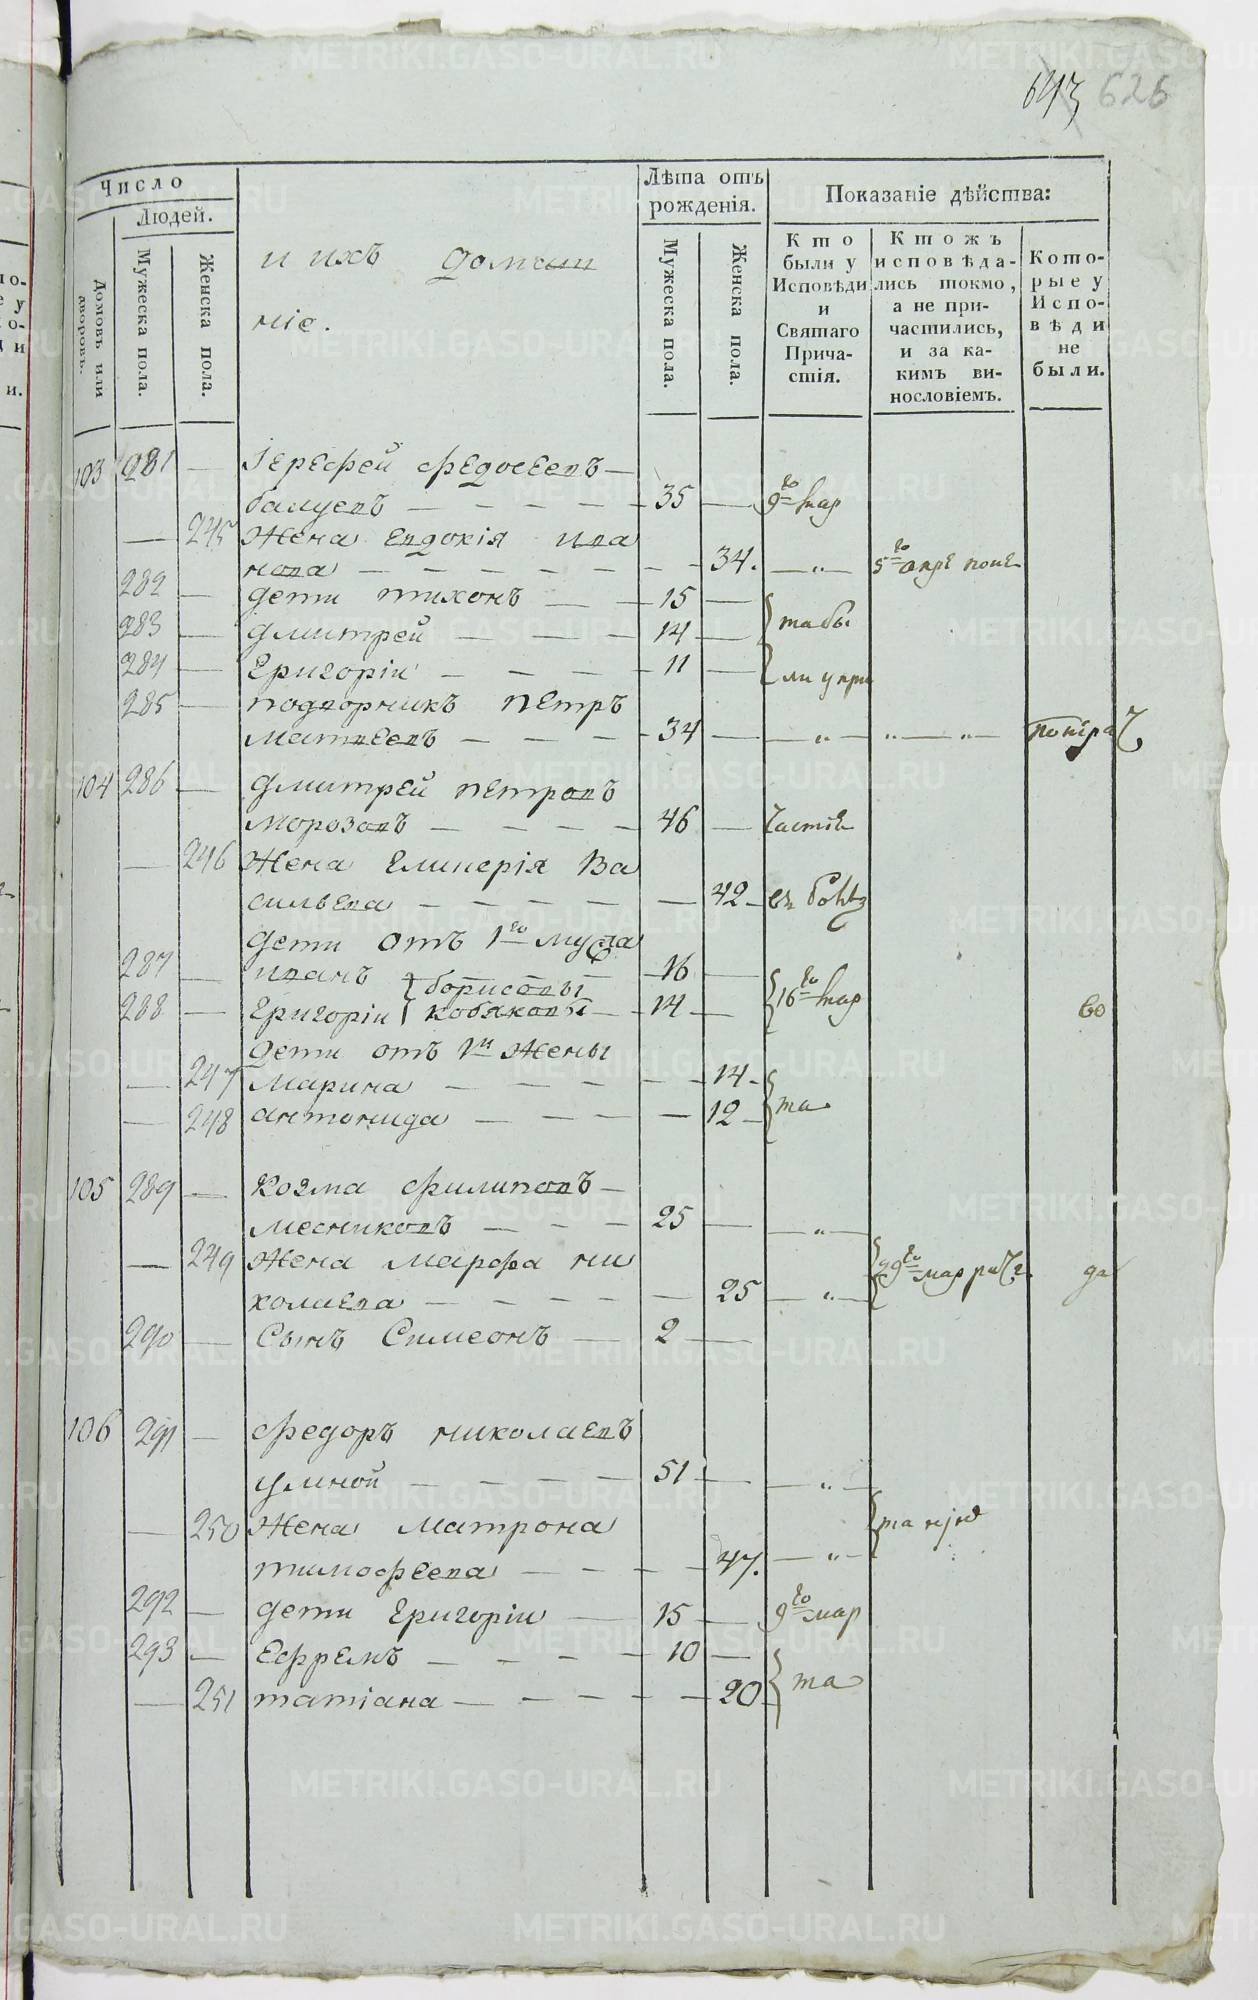 643 626
Число
Людей.
Домовъ или дворовъ.
Мужеска пола.
Женска пола.
и ихъ домаш
ніе.
Лѣта отъ рожденія.
Мужеска пола.
Женска пола.
Показаніе дѣйства:
Кто были у Исповѣди и Святаго Причастія.
Ктожъ исповѣдались токмо, а не причастились, и за какимъ винословіемъ.
Которые у Исповѣди не были.
103 281 — Ерефей Федосеевъ —
балуевъ — 35 — 9го мар
— 245 Жена Евдокія Ива
нова — 34. — „ — 5го апре
282 — дети Тихонъ — 15 —
283 — Дмитрей — 14 — та бы
284 — Григоріи — 11 — ли у при
285 — подворникъ Петръ
Матвеевъ — 34 — „ — „ — „ —
104 286 — Дмитрей Петровъ
Морозовъ — 46 — частіе
— 246 Жена Гликерія Ва
сильева — 42 —
дети отъ 1го мужа
287 — Иванъ — 16 — Борисовы
288 — Григоріи Кобяковы — 14 — 16го мар во
дети отъ 1й жены
— 247 Марина — 14 —
— 248 Антонида — 12 — та
105 289 — Козма Филиповъ —
Месниковъ — 25 — „ —
— 249 Жена Марфа Ни
колаева — 25 — „ — 29го мар да
290 — Сынъ Симеонъ — 2 —
106 291 — Федоръ Николаевъ
Умной — 51 — „ —
— 250 Жена Матрона
Тимофеева — 47. — „ — та
292 — дети Григоріи — 15 — 9го мар
293 — Ефремъ — 10 —
— 251 Татіана — 20 — та
METRIKI.GASO-URAL.RU